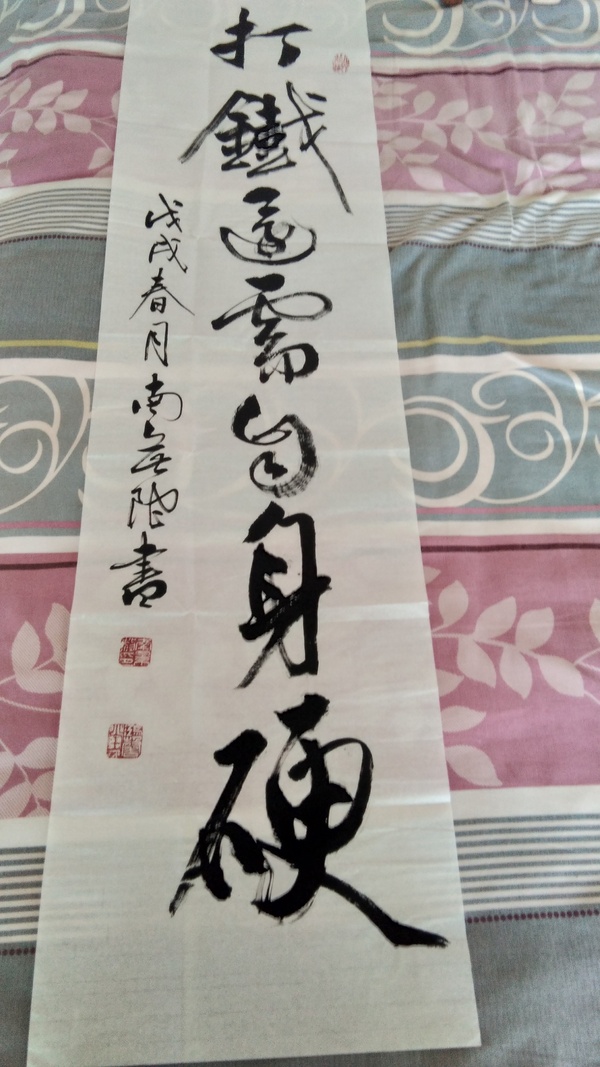 打鐵還需自身硬
戊戌春月南無階書